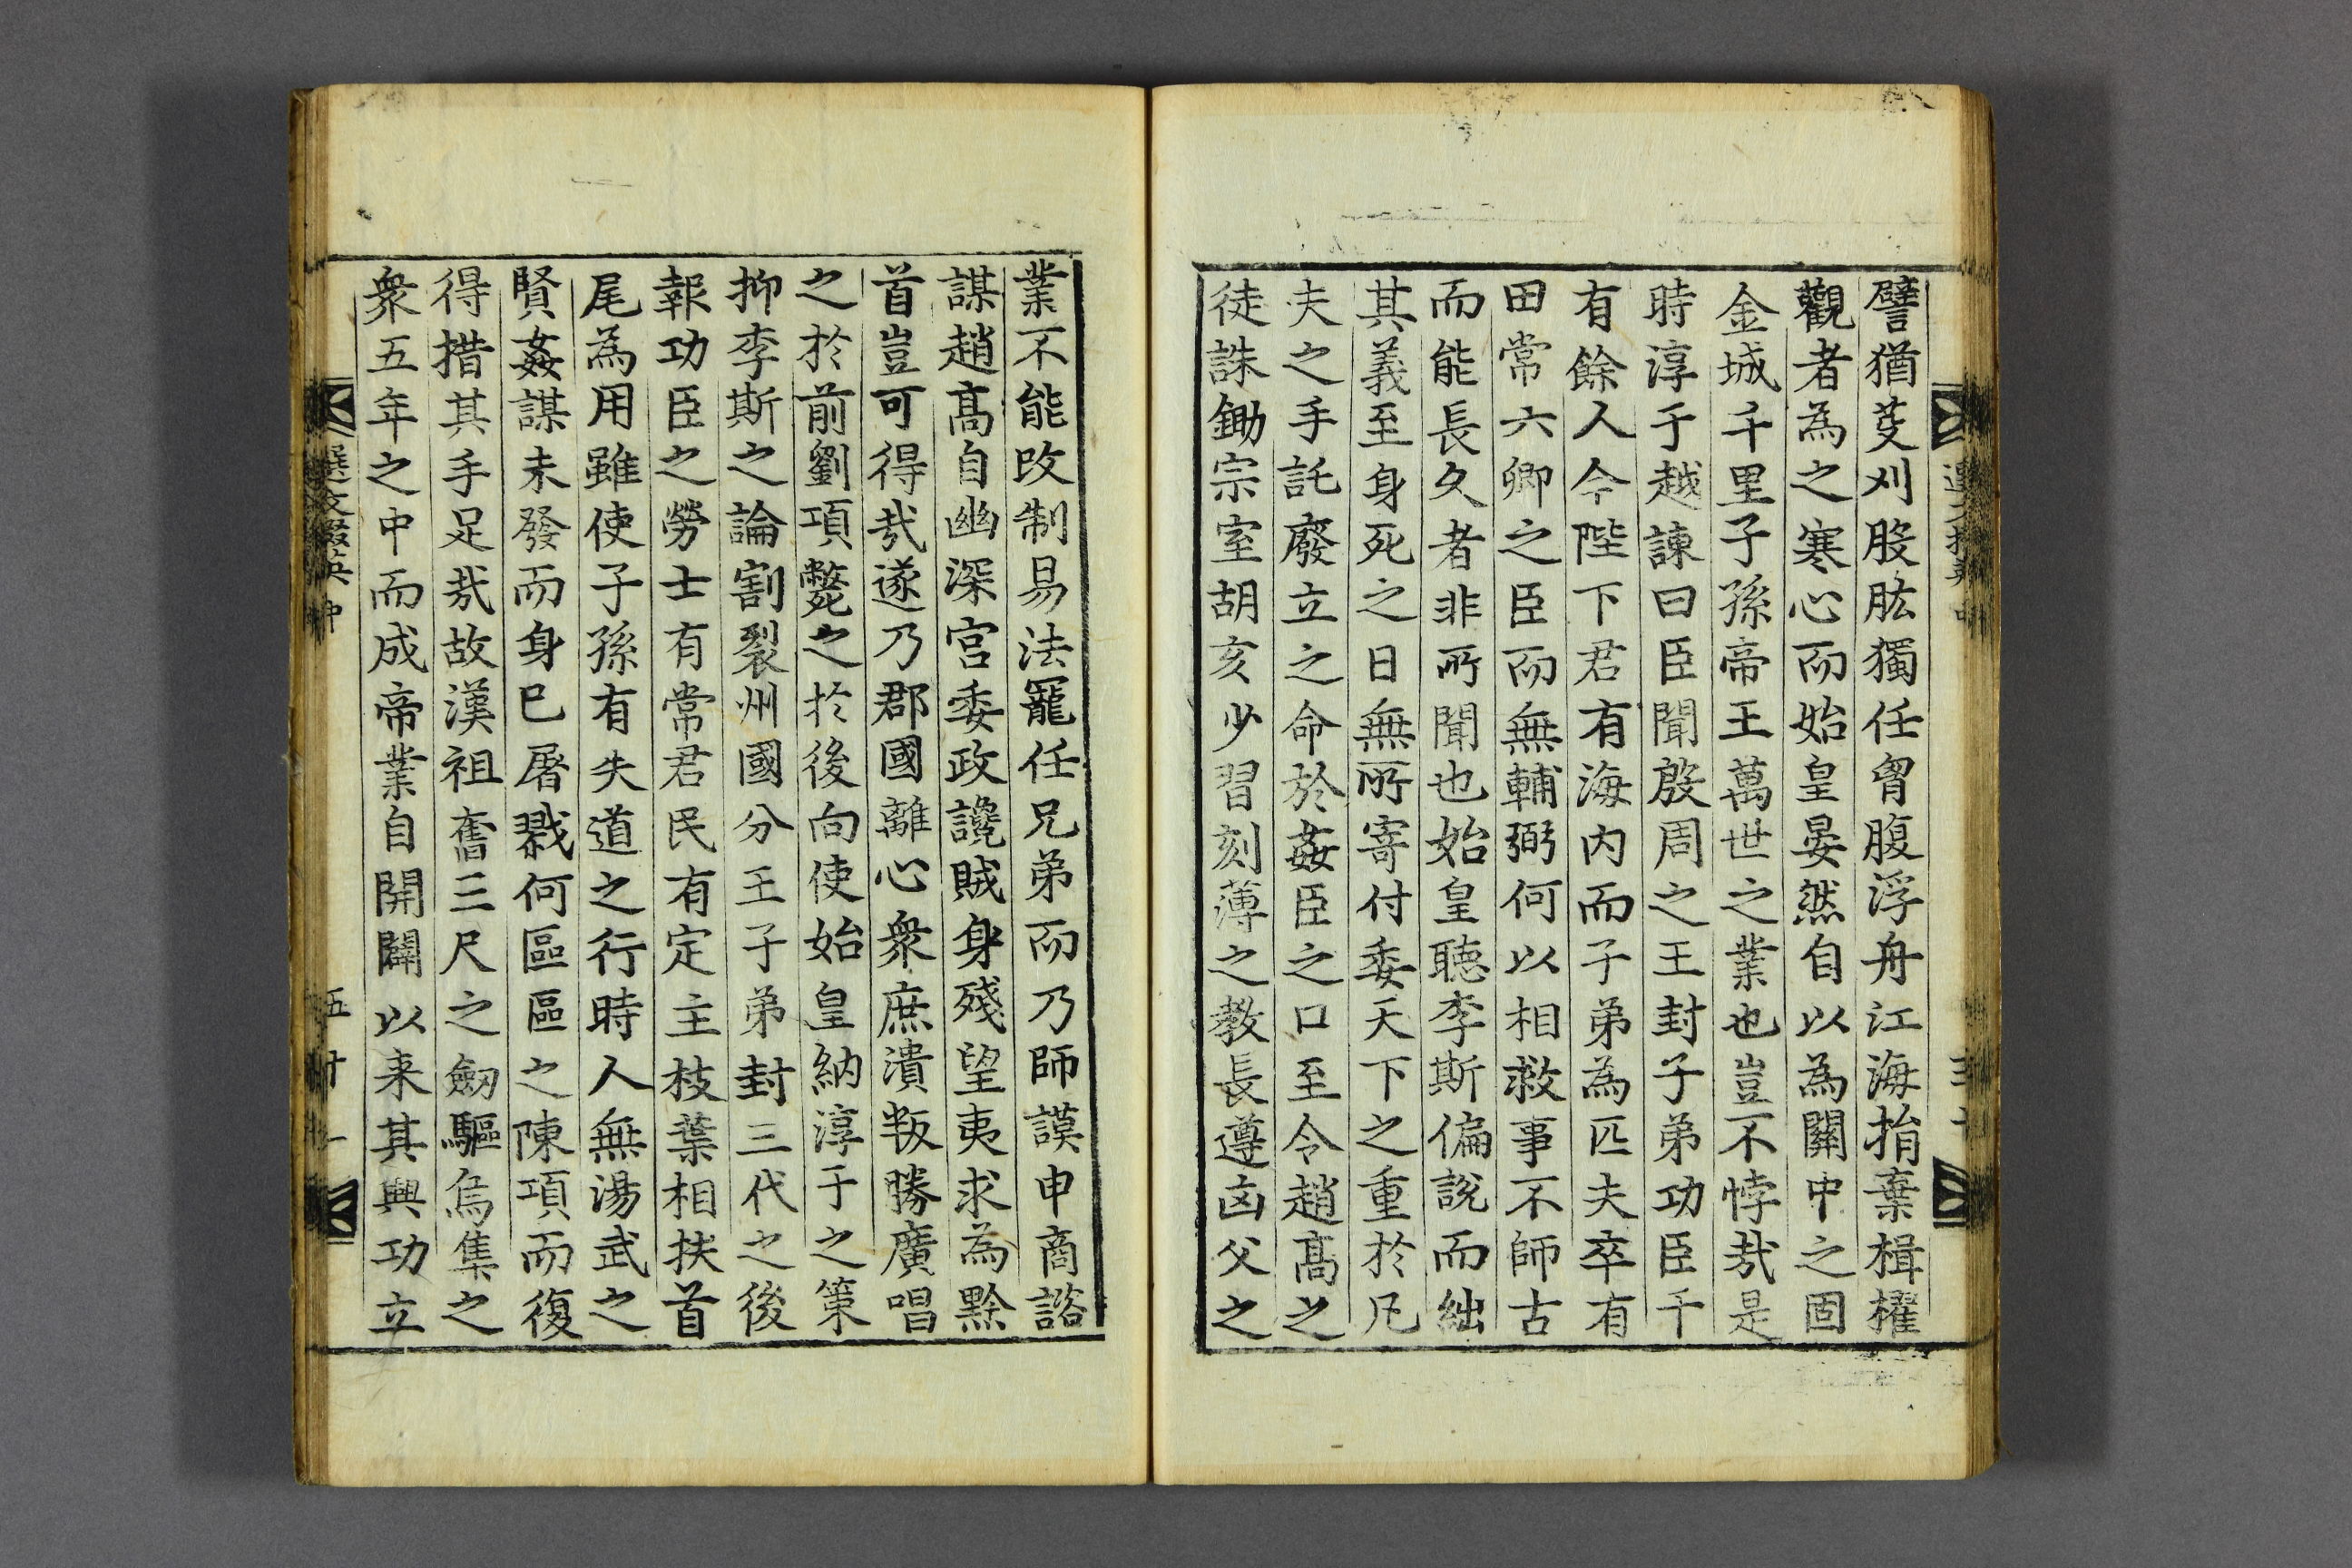 譬猶芟刈股肱獨任胷腹浮舟江海捐棄楫櫂
觀者為之寒心而始皇晏然自以為關中之固
金城千里子孫帝王萬世之業也豈不悖㢤是
時淳于越諫曰臣聞殷周之王封子弟功臣千
有餘人今陛下君有海内而子弟為匹夫卒有
田常六卿之臣而無輔弼何以相救事不師古
而能長久者非所聞也始皇聽李斯偏說而絀
其義至身死之日無所寄付委天下之重於凡
夫之手託廢立之命於姦臣之口至令趙髙之
徒誅鋤宗室胡亥少習刻薄之教長遵凶父之
業不能改制易法寵任兄弟而乃師謨申商諮
謀趙髙自幽深宮委政讒賊身殘望夷求為黔
首豈可得㢤遂乃郡國離心衆庶潰叛勝廣唱
之於前劉項斃之於後向使始皇納淳于之策
抑李斯之論割裂州國分王子弟封三代之後
報功臣之勞士有常君民有定主枝葉相扶首
尾為用雖使子孫有失道之行時人無湯武之
賢姦謀未發而身已屠戮何區區之陳項而復
得措其手足㢤故漢祖奮三尺之劒驅烏集之
衆五年之中而成帝業自開闢以来其興功立
選文掇英 中
五十一